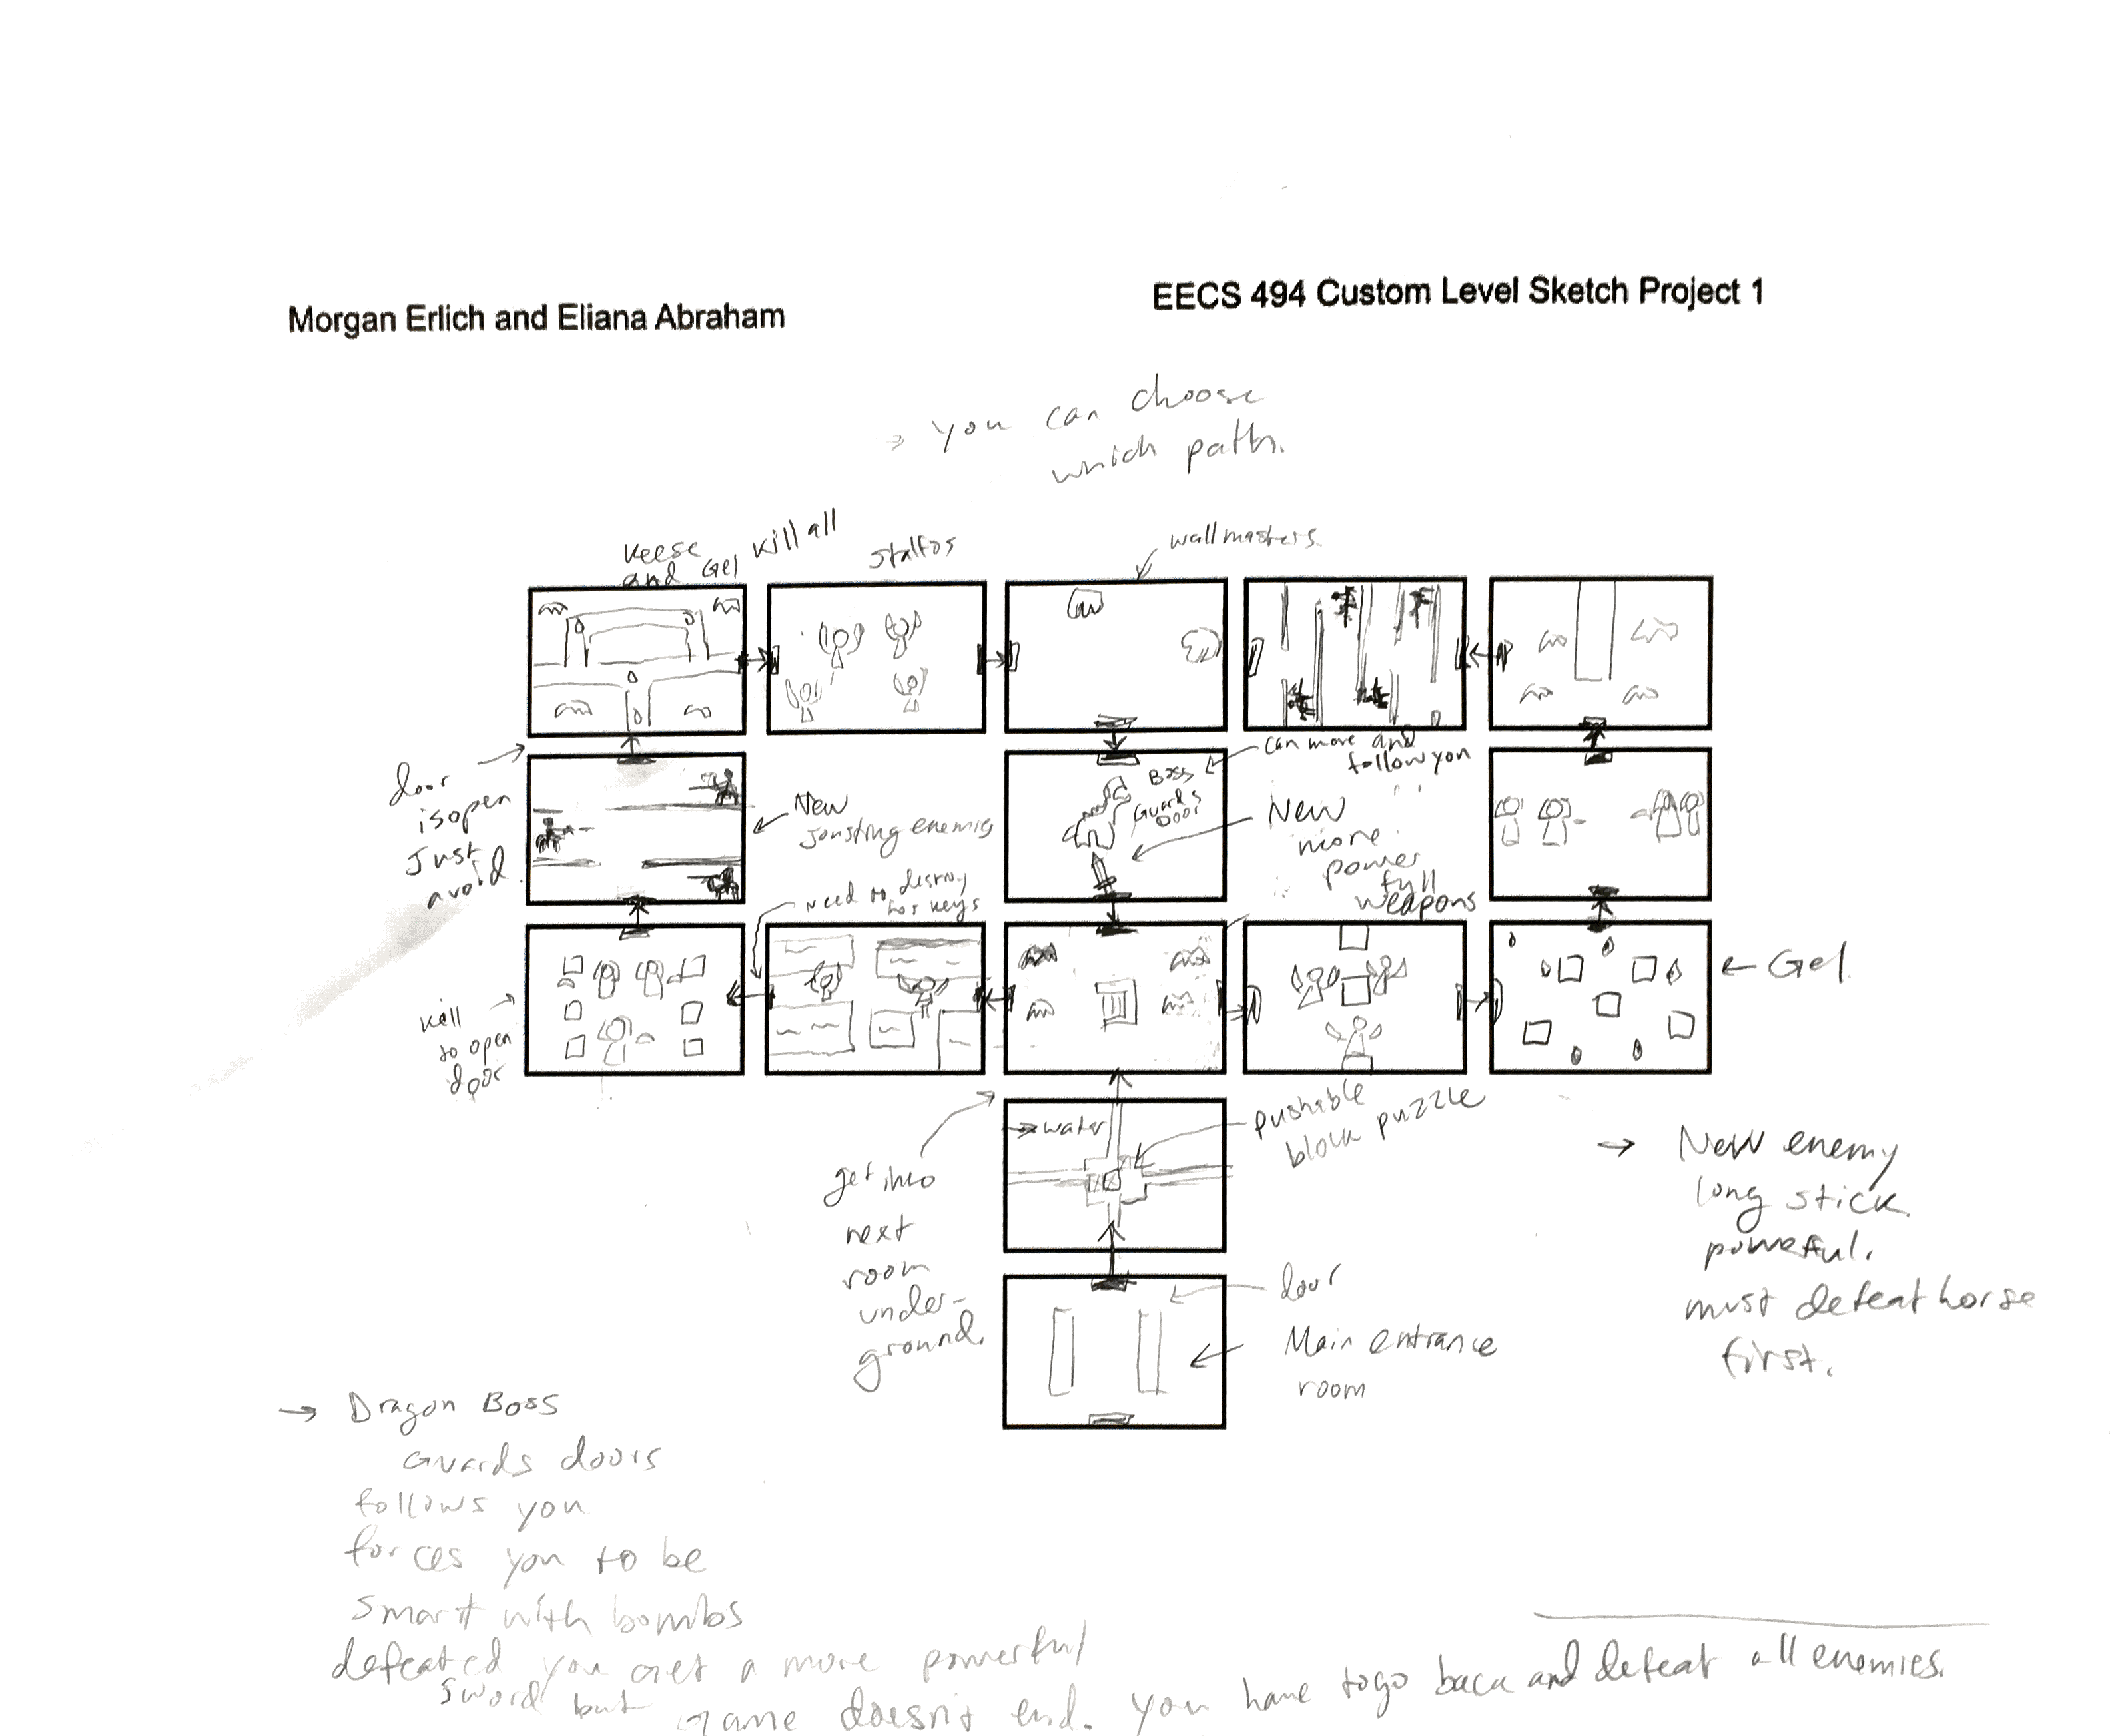 Morgan Erlich and Eliana Abraham
EECS 494 Custom Level Sketch Project 1
→ you can choose
which path.
Keese
and Gel
Kill all
Stalfos
wallmasters.
door
is open
Just
avoid
New
Jousting enemies
Boss
Guards
Door
can move and
follow you
New
more
power
full
weapons
need to destroy
for keys
kill
to open
door
← Gel
→ water
pushable
block puzzle
get into
next
room
under-
ground.
door
Main entrance
room
→ New enemy
long stick
powerful.
must defeat horse
first.
→ Dragon Boss
Guards doors
follows you
forces you to be
smart with bombs
defeated you get a more powerful
sword but game doesn't end. you have to go back and defeat all enemies.